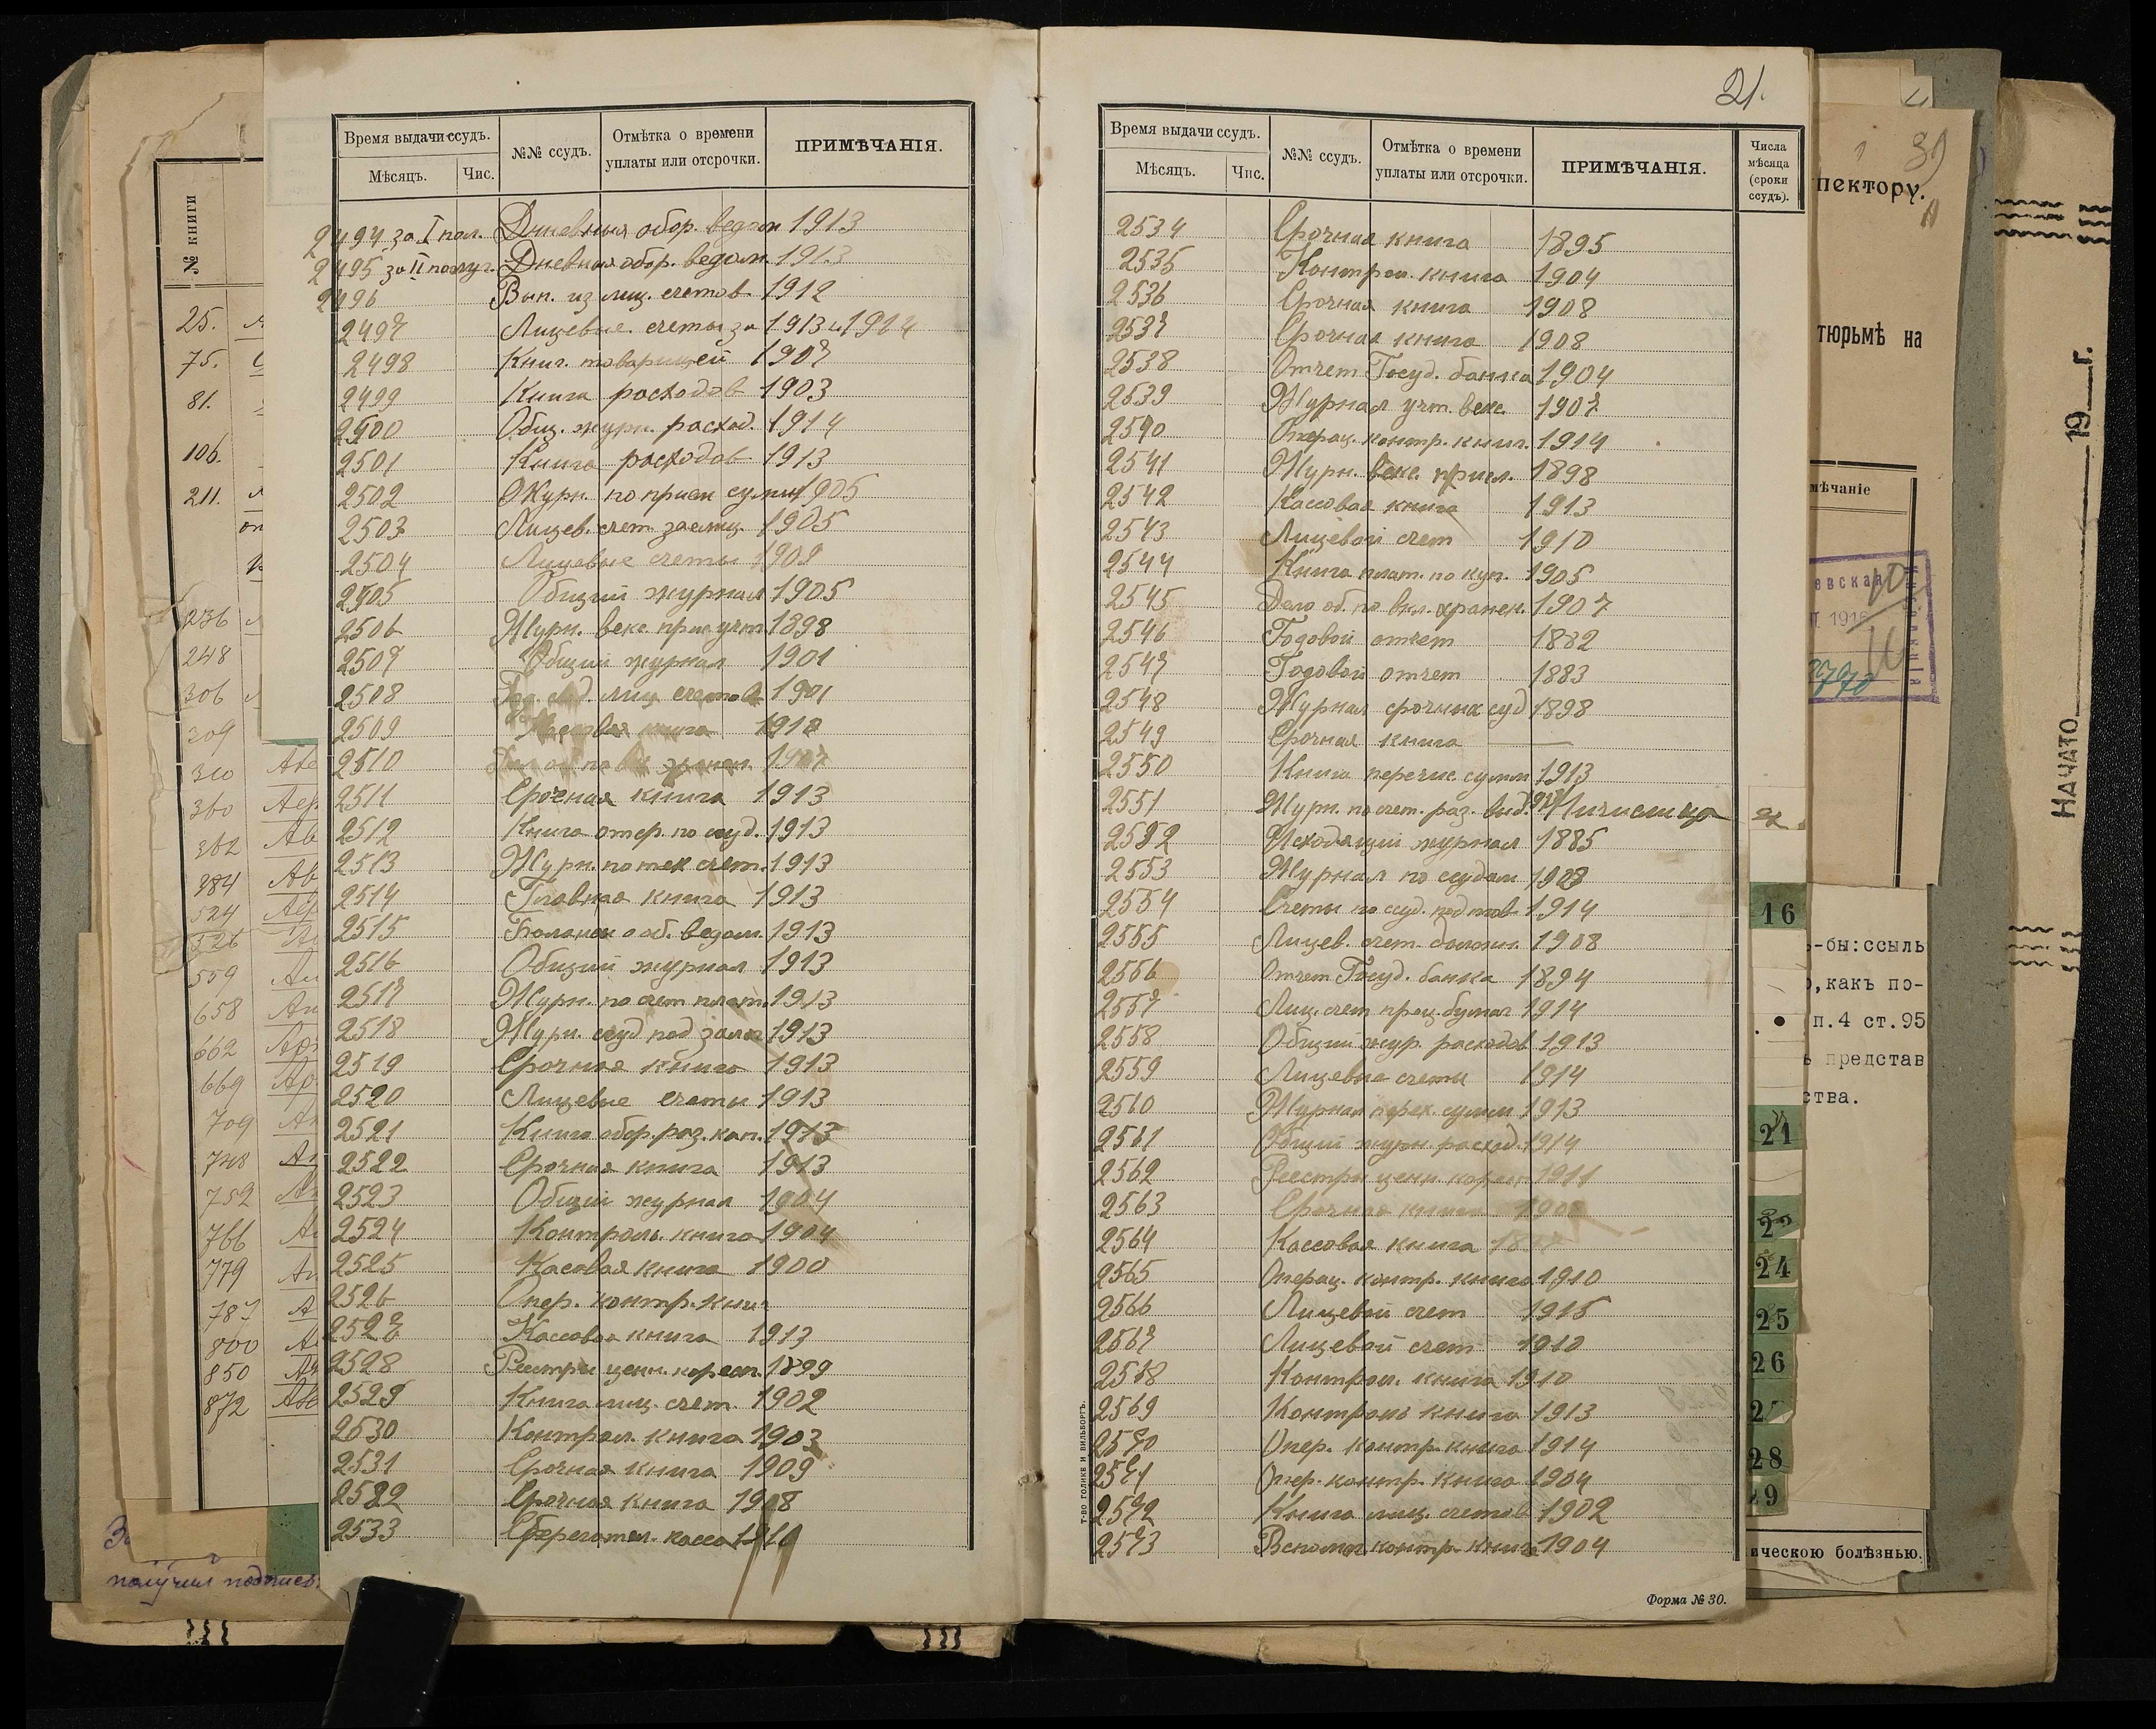 Время выдачи ссудъ.
Мѣсяцъ.
Чис.
№№ ссудъ.
Отмѣтка о времени
уплаты или отсрочки.
ПРИМѢЧАНІЯ.
2494 за I пол. Дневныя обор. ведом 1913
2495 за II полуг. Дневная обор. ведом. 1913
2496 Вып. из лиц. счетов 1912
2497 Лицевые счеты за 1913 и 1914
2498 Книг. товарищей 1907
2499 Книга расходов 1903
2500 Общ. журн. расход. 1914
2501 Книга расходов 1913
2502 Журн. по прием сумм 1905
2503 Лицев. счет заемщ. 1905
2504 Лицевые счеты 1909
2505 Общий журнал 1905
2506 Журн. векс. прин учт. 1898
2507 Общий журнал 1901
2508 лиц счетов 1901
2509 Кассовая книга 1912
2510 хранен. 1907
2511 Срочная книга 1913
2512 Книга опер. по ссуд. 1913
2513 Журн. по тек счет. 1913
2514 Главная книга 1913
2515 Балансы о об. ведом. 1913
2516 Общий журнал 1913
2517 Журн. по счет плат. 1913
2518 Журн. ссуд под залог 1913
2519 Срочная книга 1913
2520 Лицевые счеты 1913
2521 Книга обор. раз. кап. 1913
2522 Срочная книга 1913
2523 Общий журнал 1904
2524 Контроль. книга 1904
2525 Касовая книга 1900
2526 Опер. контр. книг
2527 Кассовая книга 1913
2528 Реестры ценн. кореспп. 1899
2529 Книга лиц. счет. 1902
2530 Контрол. книга 1903
2531 Срочная книга 1909
2532 Срочная книга 1908
2533 Сберегател. касса 1910
21.
Время выдачи ссудъ.
Мѣсяцъ.
Чис.
№№ ссудъ.
Отмѣтка о времени
уплаты или отсрочки.
ПРИМѢЧАНІЯ.
Числа
мѣсяца
(сроки
ссудъ).
2534 Срочная книга 1895
2535 Контрол. книга 1904
2536 Срочная книга 1908
2537 Срочная книга 1908
2538 Отчет Госуд. банка 1904
2539 Журнал учт. векс. 1907
2540 Операц. контр. книг. 1914
2541 Журн. векс. прин. 1898
2542 Кассовая книга 1913
2543 Лицевой счет 1910
2544 Книга плат. по куп. 1905
2545 Дело об. по вкл. хранен. 1907
2546 Годовой отчет 1882
2547 Годовой отчет 1883
2548 Журнал срочных суд 1898
2549 Срочная книга —
2550 Книга перечис. сумм 1913
2551 Журн. по счет. раз. выд.
2552 Исходящий журнал 1885
2553 Журнал по ссудам 1903
2554 Счеты по ссуд. под тов 1914
2555 Лицев. счет. должн. 1908
2556 Отчет Госуд. банка 1894
2557 Лиц. счет проц. бумаг 1914
2558 Общий жур. расходов 1913
2559 Лицевые счеты 1914
2560 Журнал перех. сумм 1913
2561 Общий журн. расход. 1914
2562 Реестры ценн. кореспп. 1911
2563 Срочная книга
2564 Кассовая книга
2565 Операц. контр. книга 1910
2566 Лицевой счет 1915
2567 Лицевой счет 1910
2568 Контрол. книга 1910
2569 Контроль книга 1913
2570 Опер. контр. книга 1914
2571 Опер. контр. книга 1904
2572 Книга лиц. счетов 1902
2573 Вспомог. контр. книга 1904
Т-ВО ГОЛИКЕ И ВИЛЬБОРГЪ.
Форма № 30.
№ книги
25.
75.
81.
106.
211.
236
248
306
309
310 Аве
360 Аер
362 Ав
384 Ав
524
526
559
658 Ан
662
669 Ар
709
748
752
766
779
787 А
800
850
872
получил подпись
пектору.
тюрьмѣ на
мѣчаніе
евская
1916
-бы:ссыль
,какъ по-
п.4 ст.95
ь представ
ства.
ическою болѣзнью.
16
21
22
24
25
26
28
29
НАЧАТО 19 г.